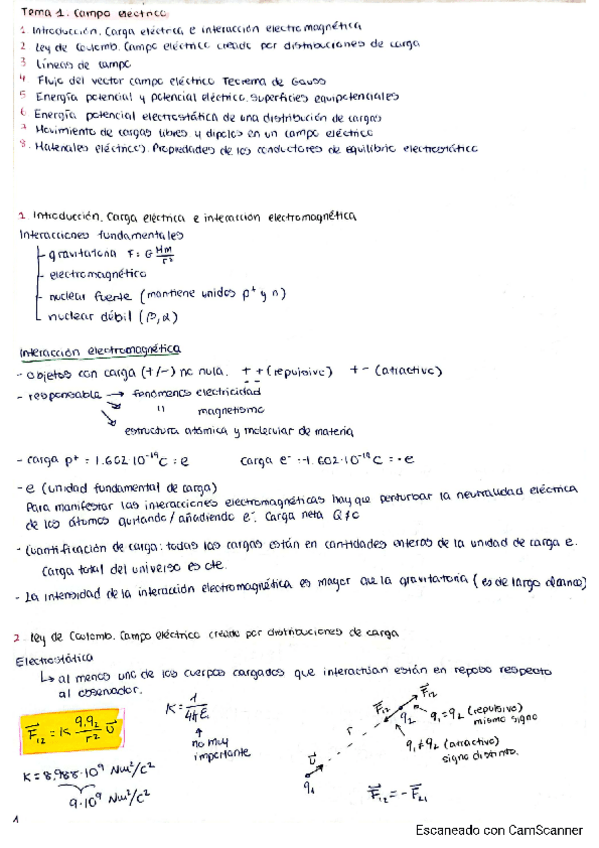 Tema 1. Campo electrico
1 Introducción. Carga eléctrica e interacción electromagnética
2 Ley de Coulomb. Campo eléctrico creado por distribuciones de carga
3 Líneas de campo
4 Flujo del vector campo eléctrico Teorema de Gauss
5 Energía potencial y potencial eléctrico. Superficies equipotenciales
6 Energía potencial electrostática de una distribución de cargas
7 Movimiento de cargas libres y dipolos en un campo eléctrico
8. Materiales eléctricos. Propiedades de los conductores de equilibrio electrostático
1. Introducción. Carga eléctrica e interacción electromagnética
Interacciones fundamentales
gravitatoria F = G Mm/r²
electromagnético
nuclear fuerte (mantiene unidos p⁺ y n)
nuclear débil (β, α)
Interacción electromagnética
- objetos con carga (+/-) no nula. + + (repulsivo) + - (atractivo)
- -
- responsable → fenómenos electricidad
" magnetismo
estructura atómica y molecular de materia
- carga p⁺ = 1.602·10⁻¹⁹ C = e carga e⁻ = -1.602·10⁻¹⁹ C = -e
- e (unidad fundamental de carga)
Para manifestar las interacciones electromagnéticas hay que perturbar la neutralidad eléctrica
de los átomos quitando/añadiendo e⁻. Carga neta Q≠0
- Cuantificación de carga: todas las cargas están en cantidades enteras de la unidad de carga e.
Carga total del universo es cte.
- La intensidad de la interacción electromagnética es mayor que la gravitatoria (es de largo alcance)
2. Ley de Coulomb. Campo eléctrico creado por distribuciones de carga
Electrostática
↳ al menos uno de los cuerpos cargados que interactúan están en reposo respecto
al observador.
F⃗₁₂ = K q₁q₂/r² u⃗
K = 1/4πε₀
↑
no muy
importante
K = 8.988·10⁹ Nm²/C²
9·10⁹ Nm²/C²
F⃗₁₂
F⃗₁₂
q₂
q₁=q₂ (repulsivo)
mismo signo
q₁≠q₂ (atractivo)
signo distinto.
r
u⃗
q₁
F⃗₁₂ = -F⃗₂₁
1
Escaneado con CamScanner